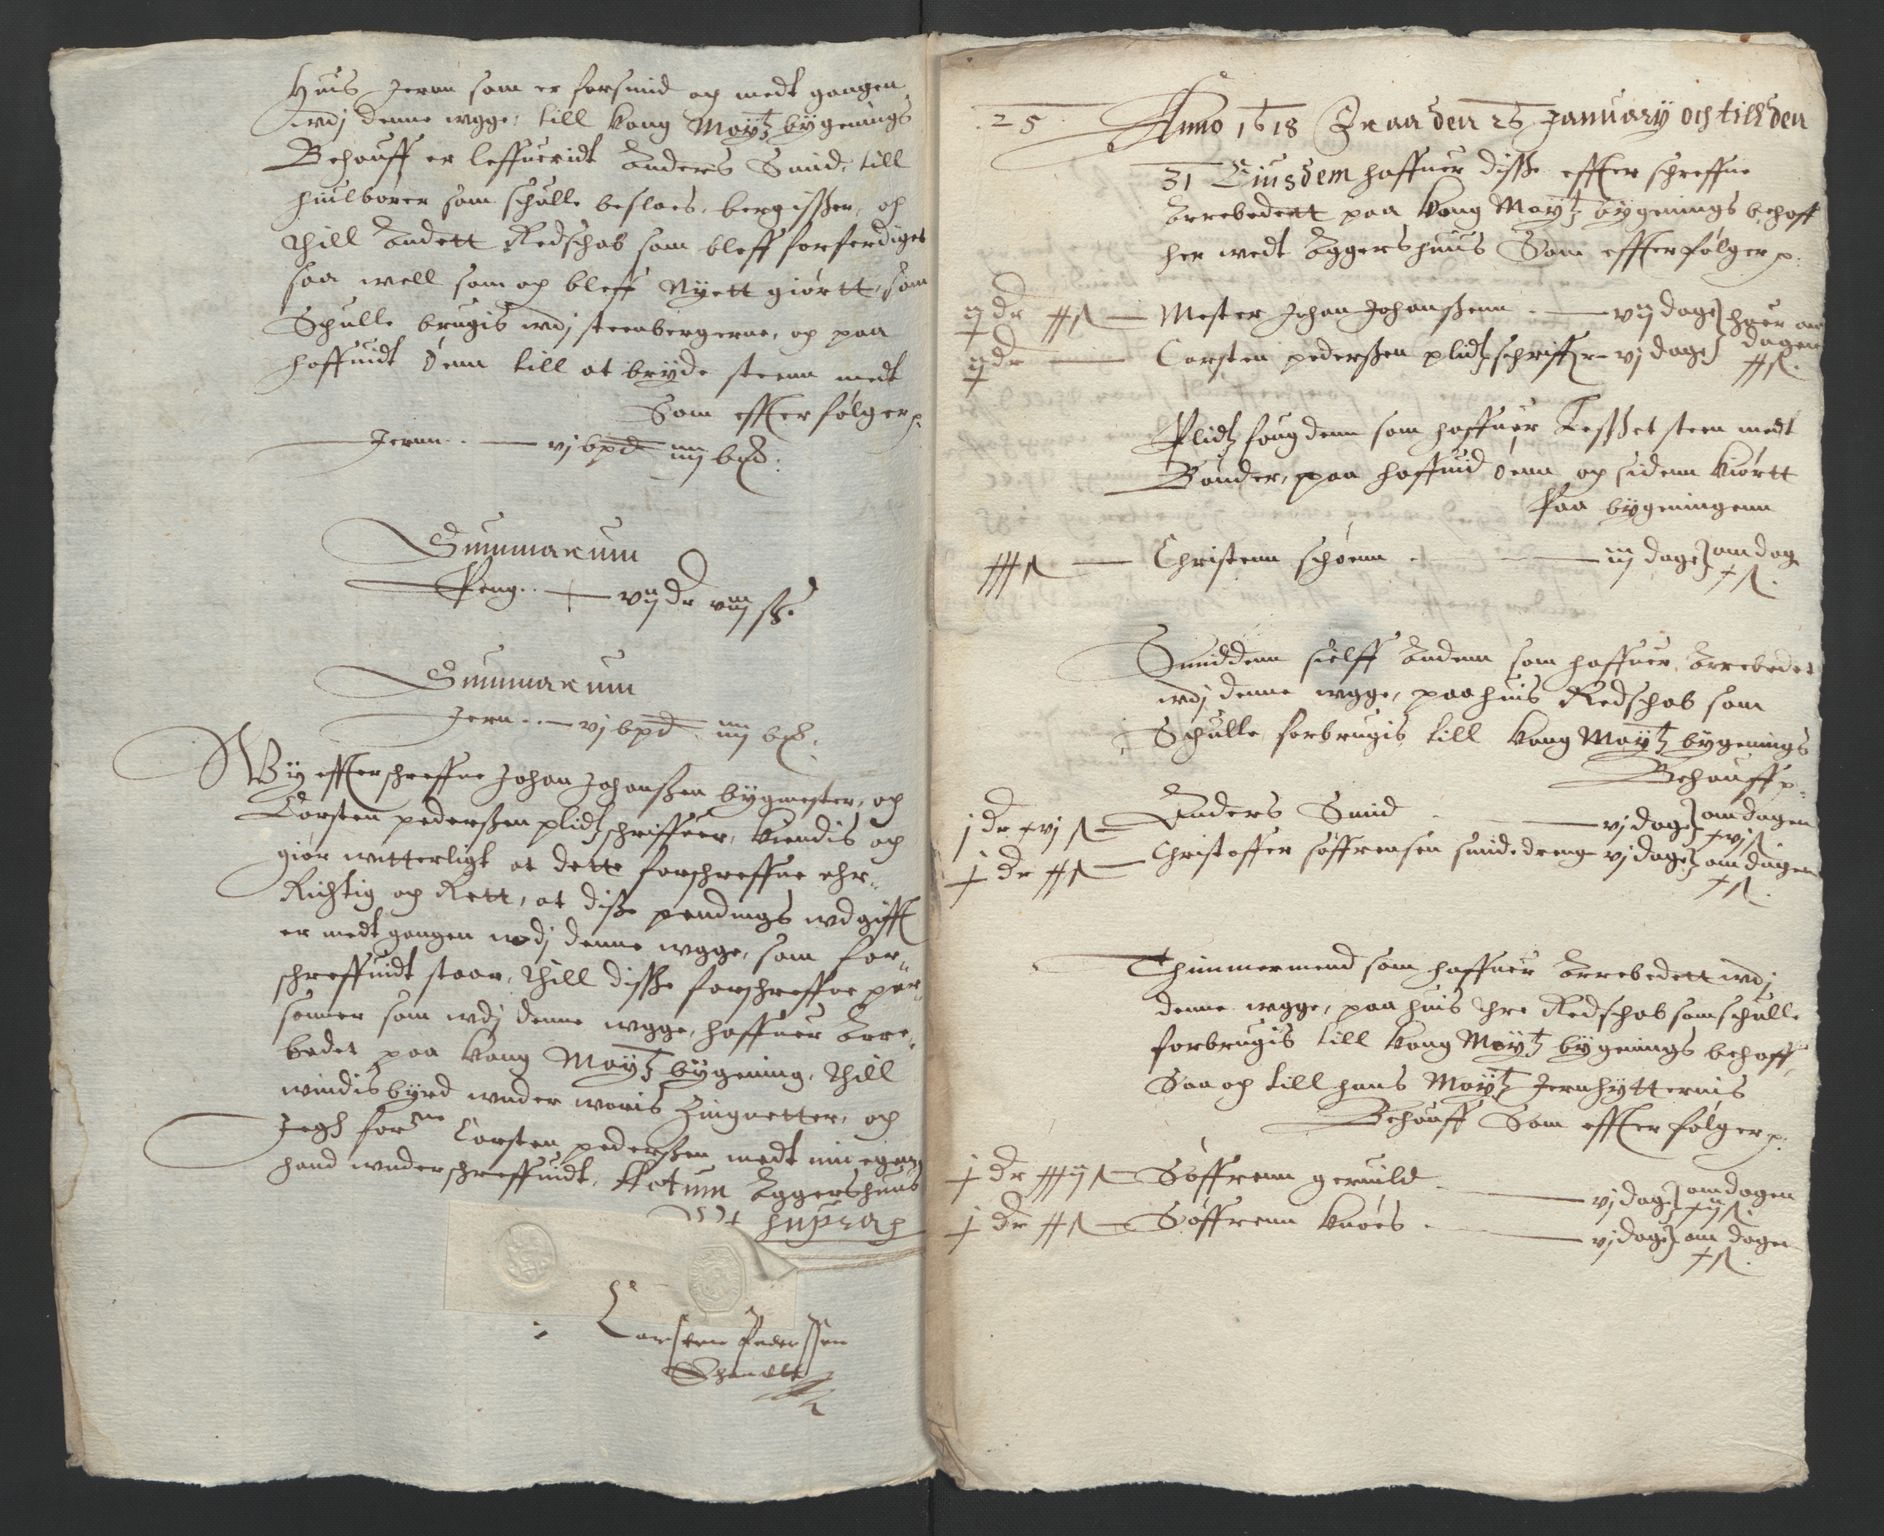 Huis Jernn som er forsmid och medt gangen
wdj denne wgge, till kong Maytz bygenings
Behouff er leffueridt Anders Smid, till
hiulbörer som schulle besloes, bergisszer, och
thill Andett Redschab som bleff forferdiget
saa well som och bleff Nyett giörtt, som
Schulle brugis wdj steenbergerne, och paa
hoffuidt öenn till at bryde steenn medt
Som effter fölger p:
Jernn .. vj bpd iiij bxß.
Summarum
Peng .. vij dr viij ß.
Summarum
Jern .. vj bpd iiij bxß.
Wy effterschreffne Johan Johanßen bygmester, och
Carsten pederßen plidtzschriffuer, kiendis och
giör witterligt at dette forschreffne ehr
Richtig och Rett, at disse pendings wdgifft
er medt gangen wdj denne wgge, som for-
schreffuidt staar, thill disße forschreffne per-
sonner som wdj denne wgge, haffuer Arre-
bedet paa kong Maytz bygening, thill
windisbyrd wnder woris Zingnetter, och
Jegh forne Carsten pederßen medt min egenn
hand wnderschreffuidt, Actum Aggershuus
Ut supra
Carsten Pederssen
25
Anno 1618 Fraa den 25 January och till den
31 Eiusdem haffuer disße effter schreffne
Arrebedett paa kong Maytz bygenings behoff
her wedt Aggershuus Som effter fölger p:
ij dr xx ß Mester Johan Johanßenn vij dage huer om dagen xx ß.
ij dr Carsten pederßen plidtzschriffr vj dage
Plidtz fougdenn som haffuer Lesßet steen medt
Bönder, paa hoffuid öenn och sidenn kiörtt
Paa bygeningenn
xxx ß Christenn schöenn iij dage om dag x ß.
Smiddenn sielff Andenn som haffuer Arrebedet
wdj denne wgge, paa huis Redschab som
Schulle forbrugis till kong Maytz bygenings
Behouff p:
j dr xvj ß Anders Smid vj dage om dagen xvj ß
j dr xx ß Christoffer söffrensen smidedreng vj dage om dagen x ß.
Thimmermend som haffuer Arrebedett wdj
denne wgge, paa huis thre Redschab som schulle
forbrugis till kong Maytz bygenings behoff,
Saa och till hans Maytz Jernhytternis
Behouff Som effter fölger p:
j dr xxxij ß Söffrenn geruild vj dage om dagen xij ß.
j dr xx ß Söffrenn knöes vj dage om dagen x ß.